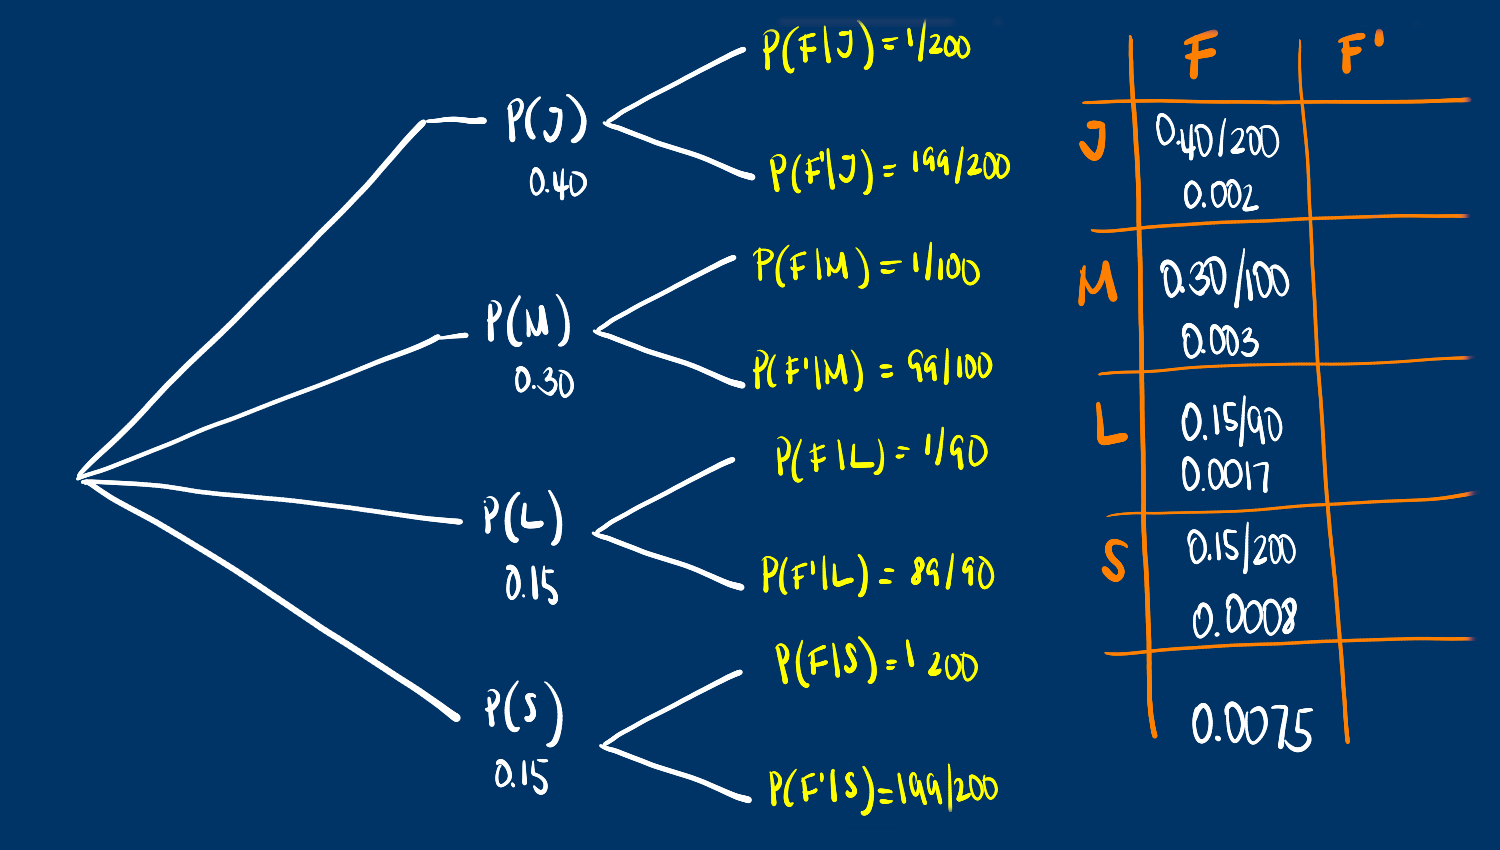 P(J)
0.40
P(F|J) = 1/200
P(F'|J) = 199/200
P(M)
0.30
P(F|M) = 1/100
P(F'|M) = 99/100
P(L)
0.15
P(F|L) = 1/90
P(F'|L) = 89/90
P(S)
0.15
P(F|S) = 1 200
P(F'|S) = 199/200
F F'
J 0.40/200
0.002
M 0.30/100
0.003
L 0.15/90
0.0017
S 0.15/200
0.0008
0.0075